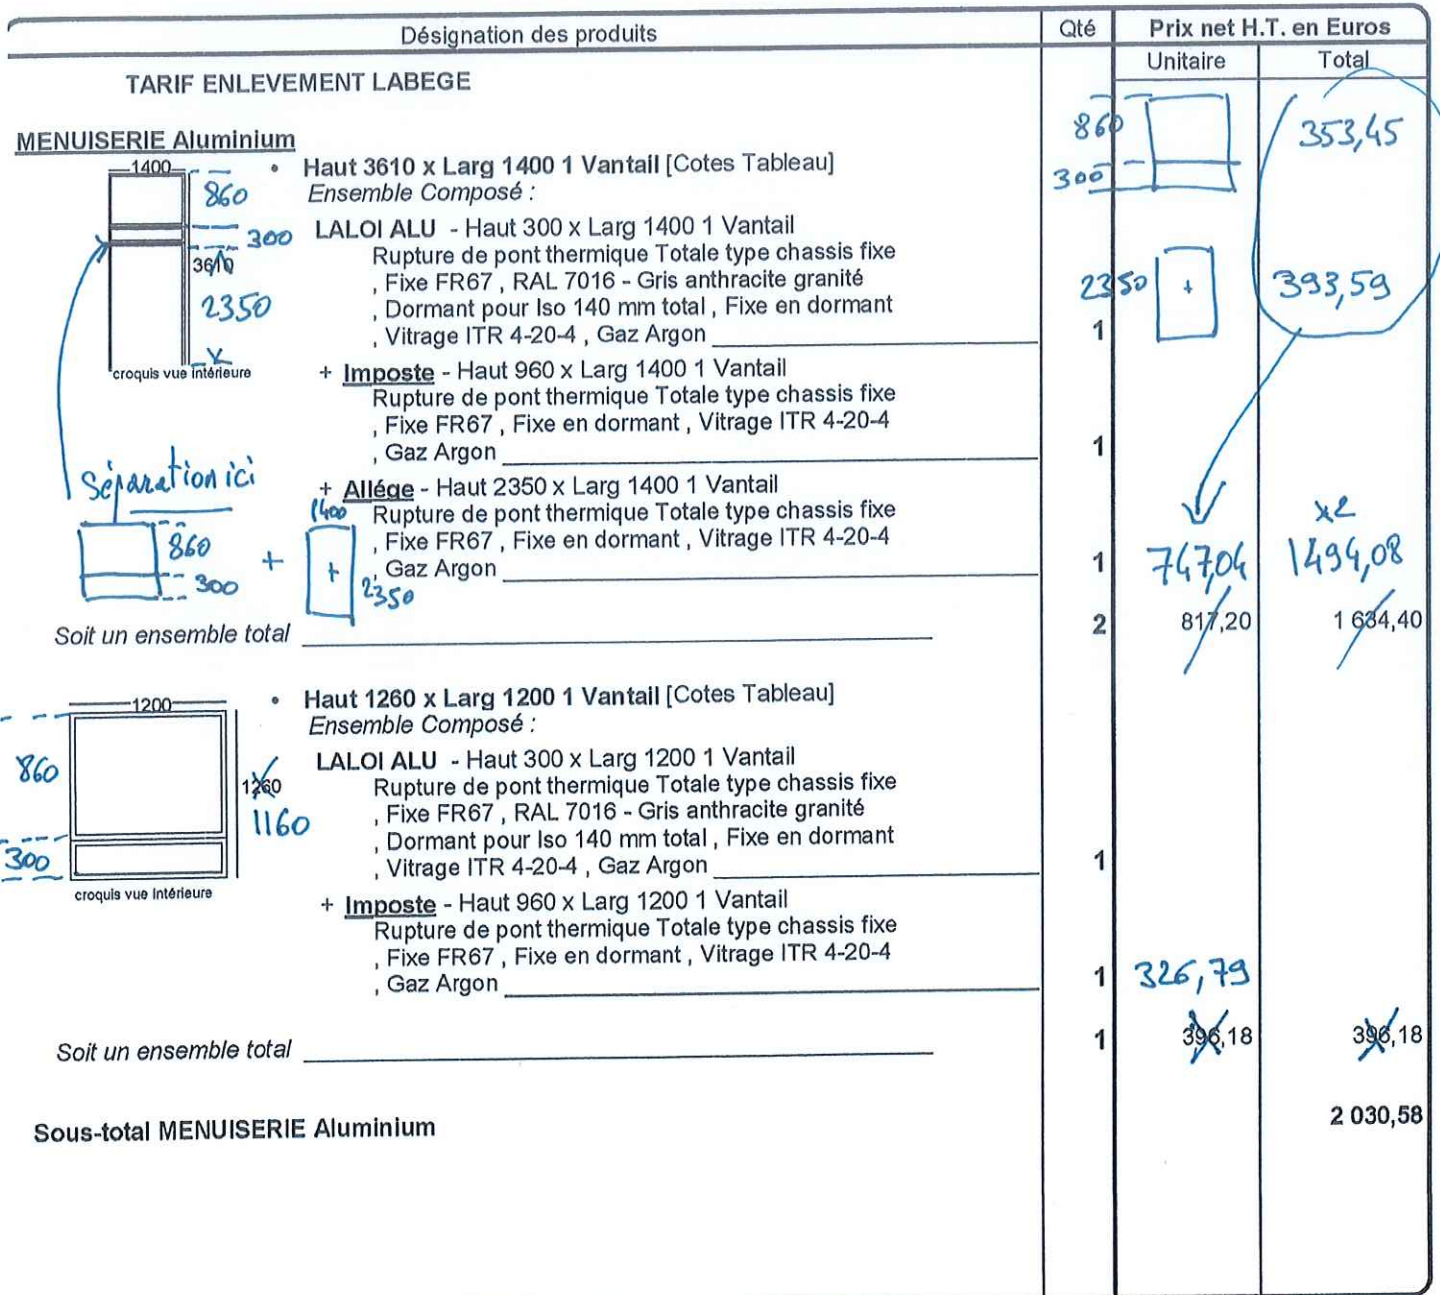 Désignation des produits
Qté
Prix net H.T. en Euros
Unitaire
Total
TARIF ENLEVEMENT LABEGE
860
300
353,45
MENUISERIE Aluminium
1400
860
300
3610
2350
croquis vue intérieure
• Haut 3610 x Larg 1400 1 Vantail [Cotes Tableau]
Ensemble Composé :
LALOI ALU - Haut 300 x Larg 1400 1 Vantail
Rupture de pont thermique Totale type chassis fixe
, Fixe FR67 , RAL 7016 - Gris anthracite granité
, Dormant pour Iso 140 mm total , Fixe en dormant
, Vitrage ITR 4-20-4 , Gaz Argon
1
2350
+
393,59
+ Imposte - Haut 960 x Larg 1400 1 Vantail
Rupture de pont thermique Totale type chassis fixe
, Fixe FR67 , Fixe en dormant , Vitrage ITR 4-20-4
, Gaz Argon
1
Séparation ici
860
300
+
1400
+
2350
+ Allége - Haut 2350 x Larg 1400 1 Vantail
Rupture de pont thermique Totale type chassis fixe
, Fixe FR67 , Fixe en dormant , Vitrage ITR 4-20-4
, Gaz Argon
1
747,04
x2
1494,08
Soit un ensemble total
2
817,20
1 634,40
1200
860
300
1260
1160
croquis vue intérieure
• Haut 1260 x Larg 1200 1 Vantail [Cotes Tableau]
Ensemble Composé :
LALOI ALU - Haut 300 x Larg 1200 1 Vantail
Rupture de pont thermique Totale type chassis fixe
, Fixe FR67 , RAL 7016 - Gris anthracite granité
, Dormant pour Iso 140 mm total , Fixe en dormant
, Vitrage ITR 4-20-4 , Gaz Argon
1
+ Imposte - Haut 960 x Larg 1200 1 Vantail
Rupture de pont thermique Totale type chassis fixe
, Fixe FR67 , Fixe en dormant , Vitrage ITR 4-20-4
, Gaz Argon
1
326,79
Soit un ensemble total
1
396,18
396,18
Sous-total MENUISERIE Aluminium
2 030,58